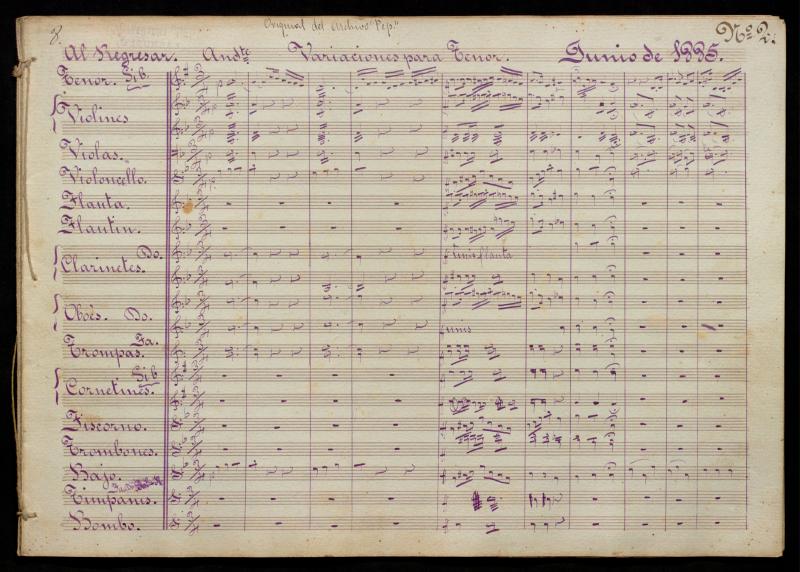 Original del Archivo "Pep."
8.
Nº 2.
Al Regresar. Andte. Variaciones para Tenor. Junio de 1885.
Tenor. Sib.
Violines
Violas.
Violoncello.
Flauta.
Flautin.
Clarinetes. Do.
unis flauta
Oboès. Do.
unis
Trompas. Fa.
Cornetines. Sib
Fiscorno.
Trombones.
Bajo.
Timpanis.
Bombo.